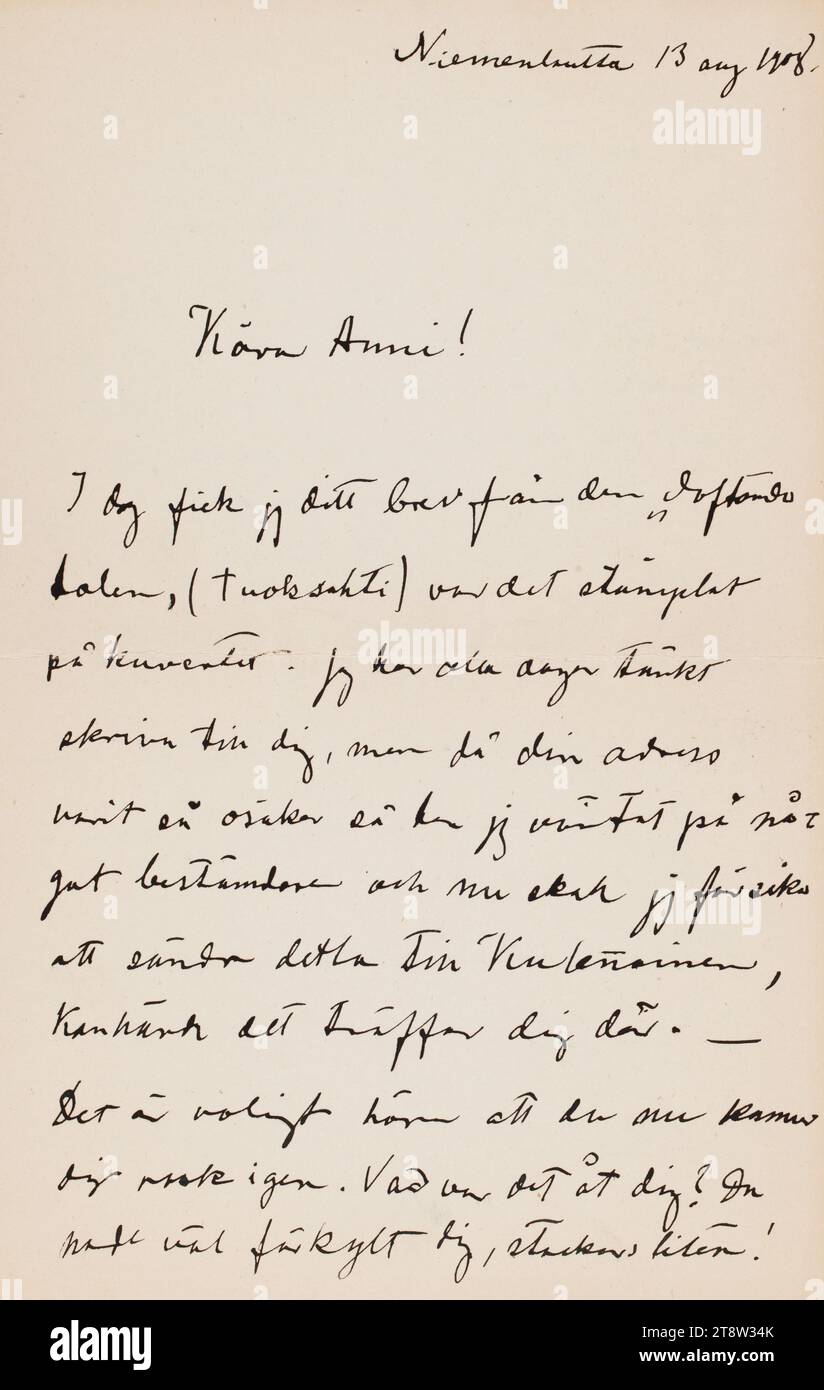 Niemenlautta 13 aug 1908.
Kära Anni!
I dag fick jag ditt brev från den „doftande
dalen, (Tuoksahti) var det stämplat
på kuvertet. Jag har alla dagar tänkt
skriva till dig, men då din adress
varit så osäker så har jag väntat på nå=
got bestämdare och nu skall jag försöka
att sända detta till
Kanhända det träffar dig där. —
Det är roligt höra att du nu känner
dig rask igen. Vad var det åt dig? Du
hade väl förkylt dig, stackars liten!
alamy
Image ID: 2T8W34K
www.alamy.com